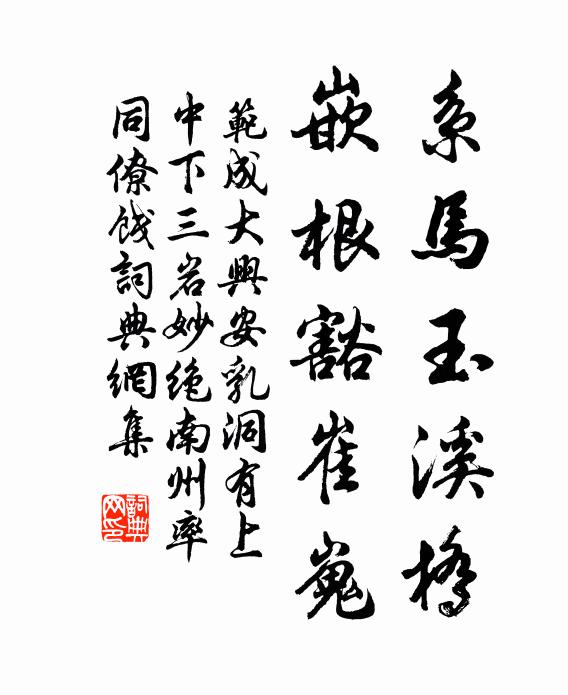 系馬玉溪橋
嵌根豁崔嵬
範成大興安乳洞有上
中下三岩妙絶南州率
同僚餞詞典網集
詞典
网印